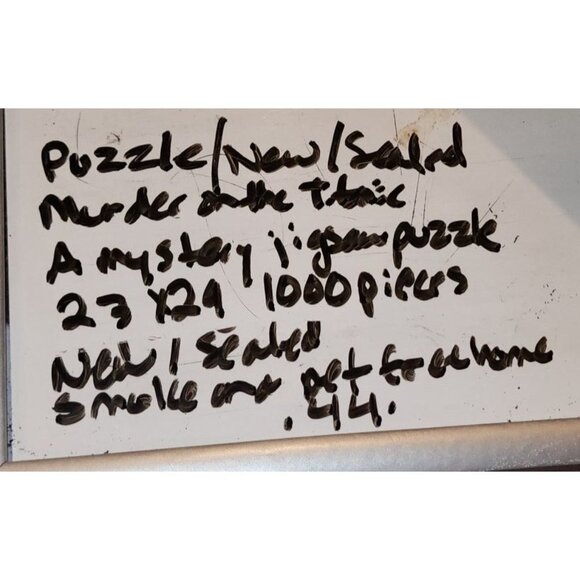 Puzzle/New/Sealed
Murder on the Titanic
A mystery jigsaw puzzle
23 x 29 1000 pieces
New / Sealed
Smoke and pet free home
.44.